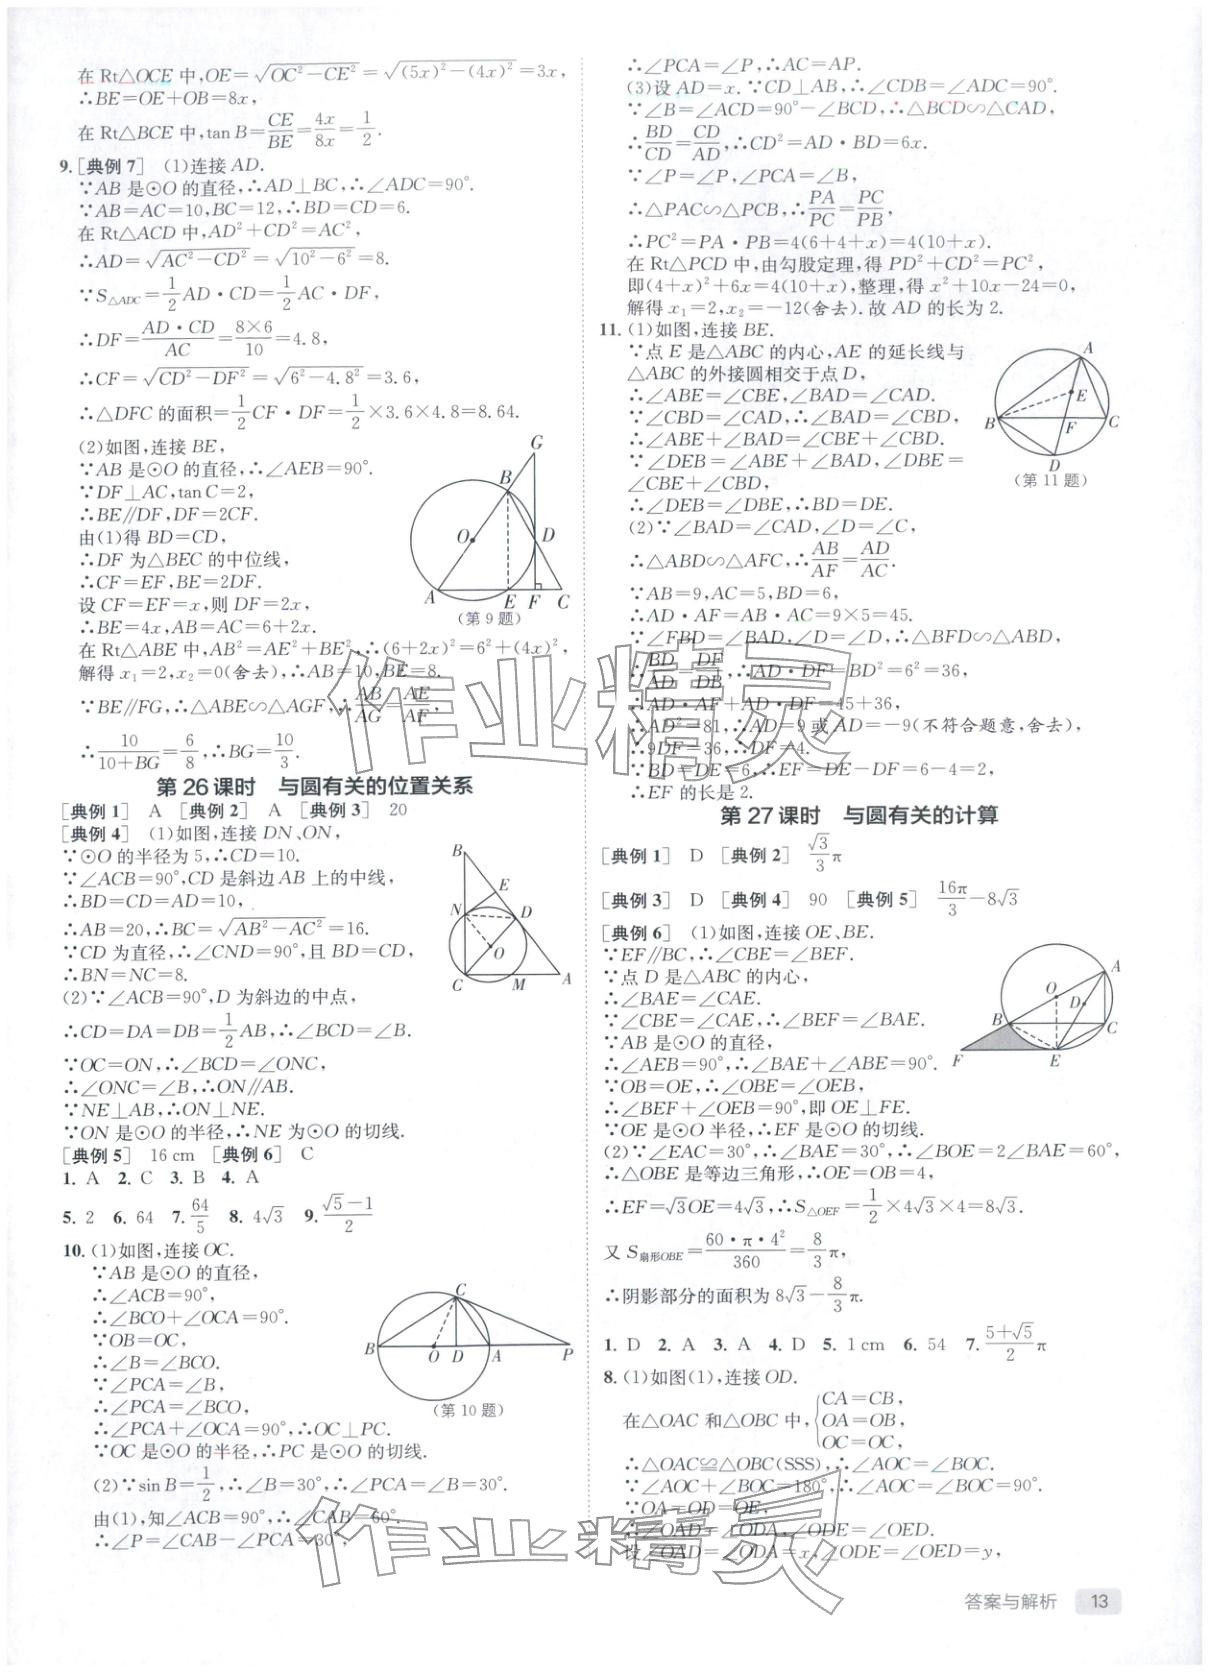 在 Rt△OCE 中,OE=√(OC²-CE²)=√((5x)²-(4x)²)=3x,
∴BE=OE+OB=8x,
在 Rt△BCE 中,tan B=CE/BE=4x/8x=1/2.
9.[典例7] (1)连接 AD.
∵AB 是⊙O 的直径,∴AD⊥BC,∴∠ADC=90°.
∵AB=AC=10,BC=12,∴BD=CD=6.
在 Rt△ACD 中,AD²+CD²=AC²,
∴AD=√(AC²-CD²)=√(10²-6²)=8.
∵S△ADC=1/2 AD·CD=1/2 AC·DF,
∴DF=AD·CD/AC=8×6/10=4.8,
∴CF=√(CD²-DF²)=√(6²-4.8²)=3.6,
∴△DFC 的面积=1/2 CF·DF=1/2×3.6×4.8=8.64.
(2)如图,连接 BE,
∵AB 是⊙O 的直径,∴∠AEB=90°.
∵DF⊥AC,tan C=2,
∴BE∥DF,DF=2CF.
由(1)得 BD=CD,
∴DF 为△BEC 的中位线,
∴CF=EF,BE=2DF.
设 CF=EF=x,则 DF=2x,
∴BE=4x,AB=AC=6+2x.
G
B
O
D
A
E
F
C
(第9题)
在 Rt△ABE 中,AB²=AE²+BE²,∴(6+2x)²=6²+(4x)²,
解得 x₁=2,x₂=0(舍去),∴AB=10,BE=8.
∵BE∥FG,∴△ABE∽△AGF,∴AB/AG=AE/AF,
∴10/(10+BG)=6/8,∴BG=10/3.
第26课时 与圆有关的位置关系
[典例1] A [典例2] A [典例3] 20
[典例4] (1)如图,连接 DN、ON,
∵⊙O 的半径为 5,∴CD=10.
∵∠ACB=90°,CD 是斜边 AB 上的中线,
∴BD=CD=AD=10,
∴AB=20,∴BC=√(AB²-AC²)=16.
∵CD 为直径,∴∠CND=90°,且 BD=CD,
∴BN=NC=8.
(2)∵∠ACB=90°,D 为斜边的中点,
∴CD=DA=DB=1/2 AB,∴∠BCD=∠B.
∵OC=ON,∴∠BCD=∠ONC,
∴∠ONC=∠B,∴ON∥AB.
∵NE⊥AB,∴ON⊥NE.
∵ON 是⊙O 的半径,∴NE 为⊙O 的切线.
B
E
N
D
O
C
M
A
[典例5] 16 cm [典例6] C
1. A 2. C 3. B 4. A
5. 2 6. 64 7. 64/5 8. 4√3 9. (√5-1)/2
10. (1)如图,连接 OC.
∵AB 是⊙O 的直径,
∴∠ACB=90°,
∴∠BCO+∠OCA=90°.
∵OB=OC,
∴∠B=∠BCO.
∵∠PCA=∠B,
∴∠PCA=∠BCO,
∴∠PCA+∠OCA=90°,∴OC⊥PC.
∵OC 是⊙O 的半径,∴PC 是⊙O 的切线.
C
B
O
D
A
P
(第10题)
(2)∵sin B=1/2,∴∠B=30°,∴∠PCA=∠B=30°.
由(1),知∠ACB=90°,∴∠CAB=60°.
∴∠P=∠CAB-∠PCA=30°,
∴∠PCA=∠P,∴AC=AP.
(3)设 AD=x. ∵CD⊥AB,∴∠CDB=∠ADC=90°.
∵∠B=∠ACD=90°-∠BCD,∴△BCD∽△CAD,
∴BD/CD=CD/AD,∴CD²=AD·BD=6x.
∵∠P=∠P,∠PCA=∠B,
∴△PAC∽△PCB,∴PA/PC=PC/PB,
∴PC²=PA·PB=4(6+4+x)=4(10+x).
在 Rt△PCD 中,由勾股定理,得 PD²+CD²=PC²,
即(4+x)²+6x=4(10+x),整理,得 x²+10x-24=0,
解得 x₁=2,x₂=-12(舍去).故 AD 的长为 2.
11. (1)如图,连接 BE.
∵点 E 是△ABC 的内心,AE 的延长线与
△ABC 的外接圆相交于点 D,
∴∠ABE=∠CBE,∠BAD=∠CAD.
∵∠CBD=∠CAD,∴∠BAD=∠CBD,
∴∠ABE+∠BAD=∠CBE+∠CBD.
∵∠DEB=∠ABE+∠BAD,∠DBE=
∠CBE+∠CBD,
∴∠DEB=∠DBE,∴BD=DE.
A
E
B
F
C
D
(第11题)
(2)∵∠BAD=∠CAD,∠D=∠C,
∴△ABD∽△AFC,∴AB/AF=AD/AC.
∵AB=9,AC=5,BD=6,
∴AD·AF=AB·AC=9×5=45.
∵∠FBD=∠BAD,∠D=∠D,∴△BFD∽△ABD,
∴BD/AD=DF/DB,∴AD·DF=BD²=6²=36,
∴AD·AF+AD·DF=45+36,
∴AD²=81,∴AD=9 或 AD=-9(不符合题意,舍去),
∴9DF=36,∴DF=4.
∵BD=DE=6,∴EF=DE-DF=6-4=2,
∴EF 的长是 2.
第27课时 与圆有关的计算
[典例1] D [典例2] √3/3 π
[典例3] D [典例4] 90 [典例5] 16π/3-8√3
[典例6] (1)如图,连接 OE、BE.
∵EF∥BC,∴∠CBE=∠BEF.
∵点 D 是△ABC 的内心,
∴∠BAE=∠CAE.
∵∠CBE=∠CAE,∴∠BEF=∠BAE.
∵AB 是⊙O 的直径,
∴∠AEB=90°,∴∠BAE+∠ABE=90°.
∵OB=OE,∴∠OBE=∠OEB,
∴∠BEF+∠OEB=90°,即 OE⊥FE.
∵OE 是⊙O 半径,∴EF 是⊙O 的切线.
A
O
D
B
C
F
E
(2)∵∠EAC=30°,∴∠BAE=30°,∴∠BOE=2∠BAE=60°,
∴△OBE 是等边三角形,∴OE=OB=4,
∴EF=√3OE=4√3,∴S△OEF=1/2×4√3×4=8√3.
又 S扇形OBE=60·π·4²/360=8/3 π,
∴阴影部分的面积为 8√3-8/3 π.
1. D 2. A 3. A 4. D 5. 1 cm 6. 54 7. (5+√5)/2 π
8. (1)如图(1),连接 OD.
在△OAC 和△OBC 中,{CA=CB,
OA=OB,
OC=OC,
∴△OAC≌△OBC(SSS),∴∠AOC=∠BOC.
∵∠AOC+∠BOC=180°,∴∠AOC=∠BOC=90°.
∵OA=OD=OE,
∴∠OAD=∠ODA,∠ODE=∠OED.
设∠OAD=∠ODA=x,∠ODE=∠OED=y,
作业精灵
作业精灵
答案与解析 13